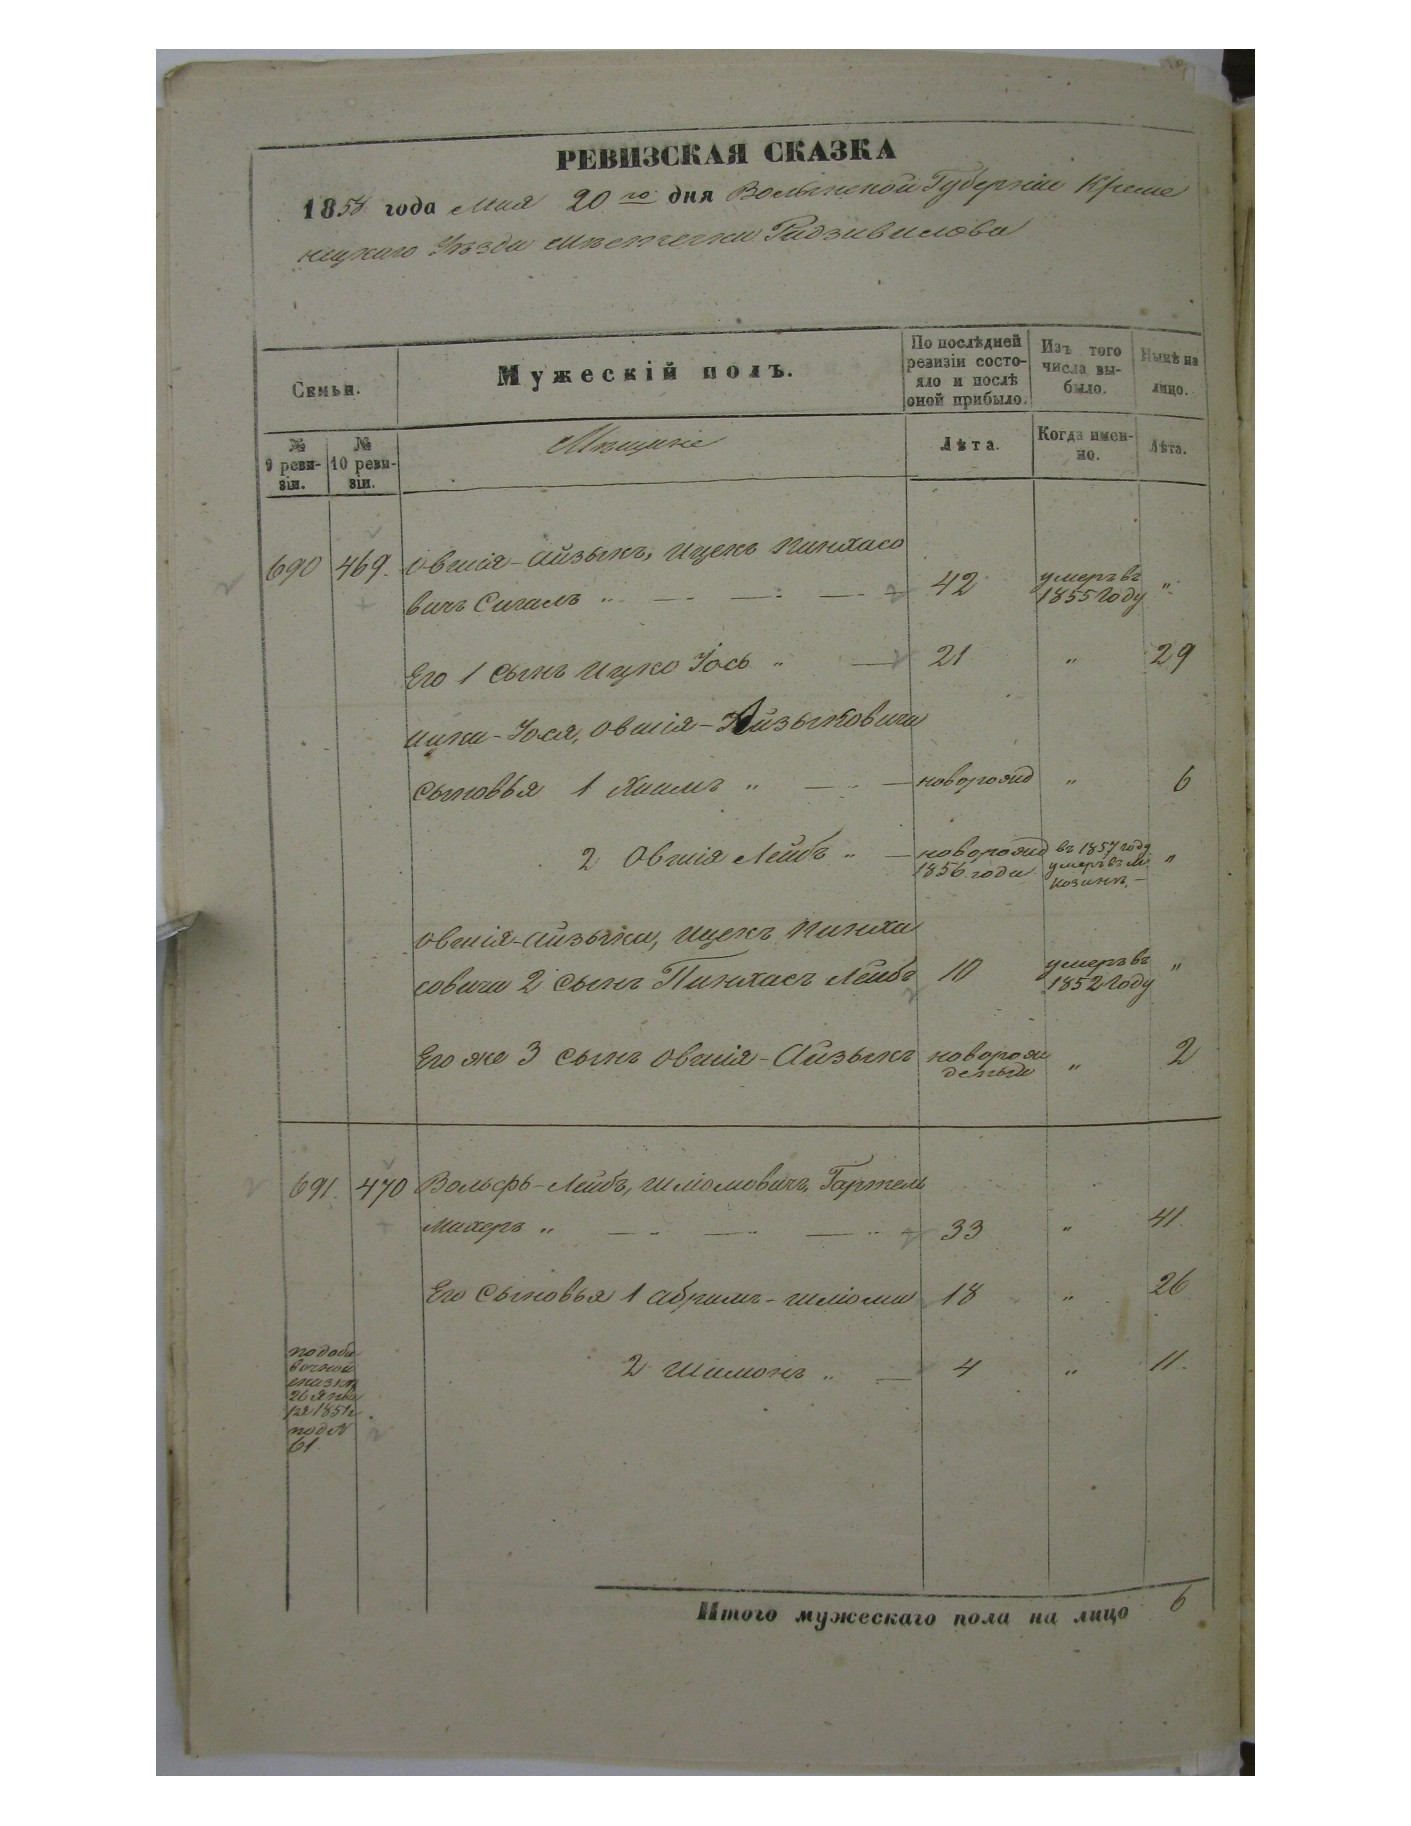 РЕВИЗСКАЯ СКАЗКА
1858 года Мая 20го дня Волынской Губерніи Креме
нецкаго Уѣзда мѣстечка Радзивилова
Семьи.
Мужескій полъ.
По послѣдней ревизіи состояло и послѣ оной прибыло.
Изъ того числа выбыло.
Нынѣ на лицо.
№ 9 ревизіи.
№ 10 ревизіи.
Мѣщане
Лѣта.
Когда именно.
Лѣта.
690 469. Овшія-Айзыкъ, Ицекъ Пинхасо
вичъ Сигалъ „ 42 умеръ въ 1855 Году „
Его 1 сынъ Ицко Іось „ 21 „ 29
Ицки-Іося, Овшія-Айзыковича
сыновья 1 Хаимъ „ новорожд „ 6
2 Овшія Лейбъ „ новорожд 1856 года въ 1857 году умеръ въ м. Козинѣ. „
Овшія-Айзыка, Ицекъ Пинха
совича 2 сынъ Пинхасъ Лейбъ 10 умеръ въ 1852 Году „
Его же 3 сынъ Овшія-Айзыкъ новорож
денъи „ 2
691. 470 Вольфъ-Лейбъ, Шліомовичъ, Гартель
Махеръ „ 33 „ 41.
Его сыновья 1 Абрамъ-Шліома 18 „ 26
2 Шимонъ „ 4 „ 11.
по доба
вочной
сказкѣ
26 Янва
ря 1851 г.
под №
61
Итого мужескаго пола на лицо 6